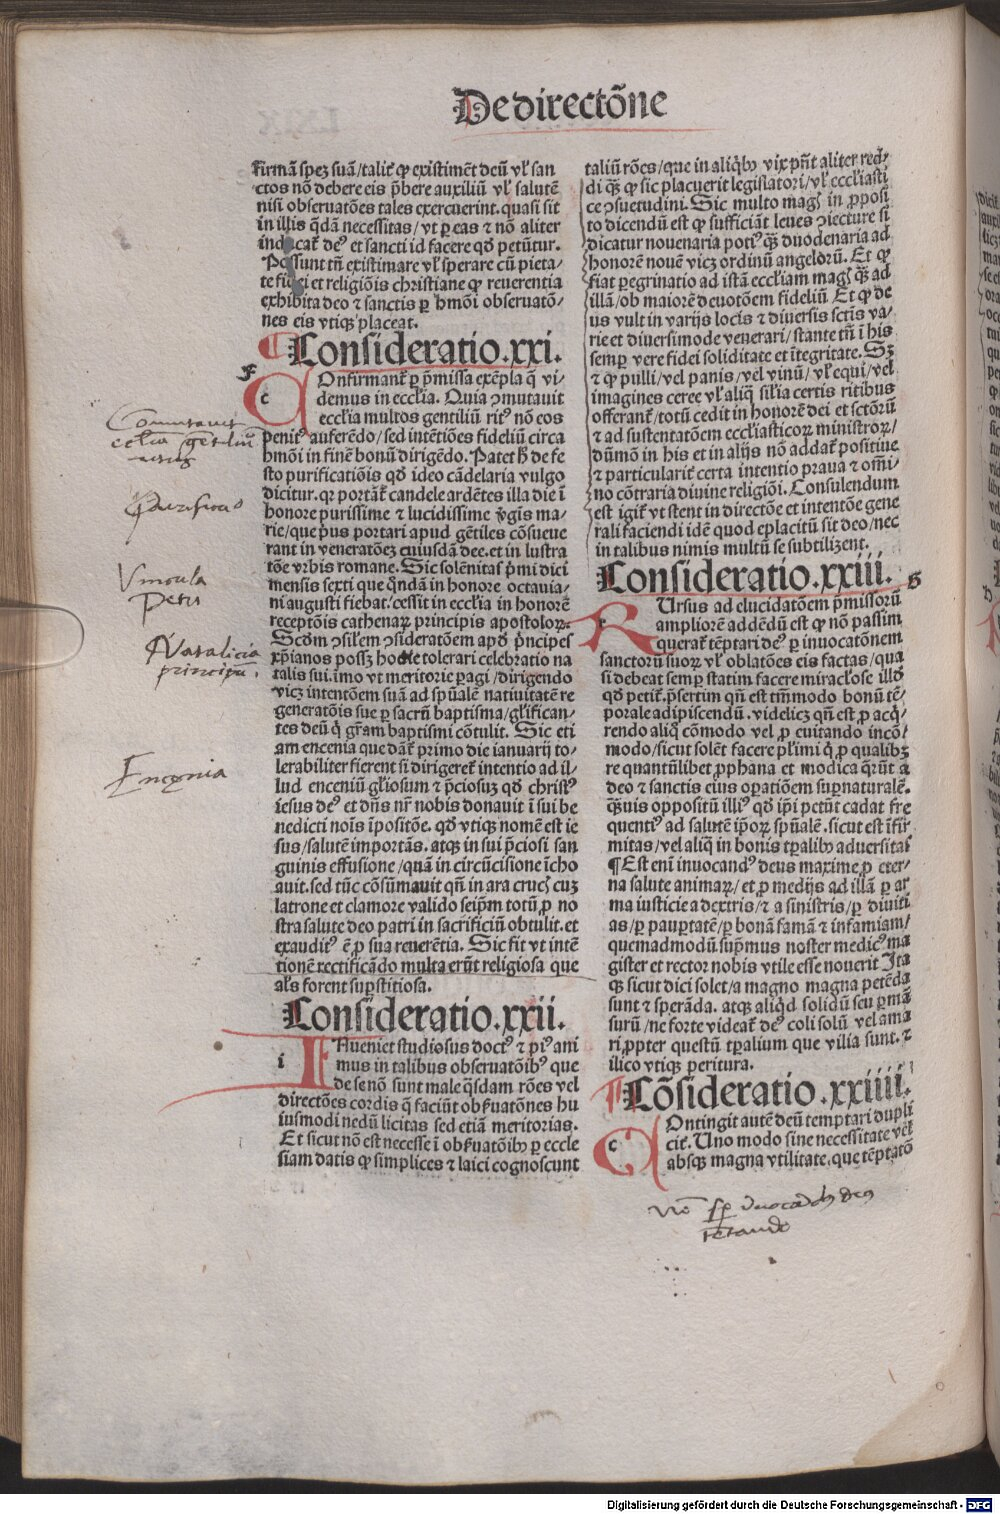 De directōne
firmā spez suā/talit̄ ꝙ existimēt deū vl̓ san
ctos nō debere eis p̄bere auxiliū vl̓ salutē
nisi obseruatōes tales exercuerint. quasi sit
in illis q̄dā necessitas/vt ꝑ eas ⁊ nō aliter
inducat̄ deꝰ et sancti id facere qd̓ petūtur.
Possunt tn̄ existimare vl̓ sperare cū pieta/
te fidei et religiōis christiane ꝙ reuerentia
exhibita deo ⁊ sanctis ꝑ hmōi obseruatō/
nes eis vtiqꝫ placeat.
Consideratio.xxi.
F
c
Onfirmant̄ ꝑ p̄missa exēpla q̄ vi/
demus in eccl̓ia. Quia ꝯmutauit
eccl̓ia multos gentiliū ritꝰ nō eos
penitꝰ auferēdo/sed intētiōes fideliū circa
hmōi in finē bonū dirigēdo. Patet h̓ de fe
sto purificatiōis qd̓ ideo cādelaria vulgo
dicitur. qꝛ portāt̄ candele ardētes illa die ī
honore purissime ⁊ lucidissime v̓gīs ma/
rie/que pͥus portari apud gētiles cōsueue
rant in veneratōeꝫ cuiusdā dee. et in lustra
tōe vrbis romane. Sic solēnitas pͥmi diei
mensis sexti que q̄ndā in honore octauia/
ni augusti fiebat/cessit in eccl̓ia in honorē
receptōis cathenaꝝ principis apostoloꝝ.
Scd̓m ꝯsil̓em ꝯsideratōem apd̓ pͥncipes
xp̄ianos possꝫ hodie tolerari celebratio na
talis sui. imo vt meritorie ꝑagi/dirigendo
vicꝫ intentōem suā ad sp̄ualē natiuitatē re
generatōis sue ꝑ sacrū baptisma/gl̓ifican/
tes deū qͥ gr̄am baptismi cōtulit. Sic eti
am encenia que dant̄ primo die ianuarij to/
lerabiliter fierent si dirigeret̄ intentio ad il/
lud enceniū gl̓iosum ⁊ p̄ciosuꝫ qd̓ christꝰ
iesus deꝰ et dn̄s nr̄ nobis donauit ī sui be
nedicti noīs īpositōe. qd̓ vtiqꝫ nomē est ie
sus/salutē importās. atqꝫ in sui p̄ciosi san
guinis effusione/quā in circūcisione īcho
auit. sed tūc cōsūmauit qn̄ in ara crucꝭ cuꝫ
latrone et clamore valido seip̄m totū ꝓ no
stra salute deo patri in sacrificiū obtulit. et
exauditꝰ ē ꝓ sua reuerētia. Sic fit vt intē
tionē rectificādo multa erūt religiosa que
al̓s forent suꝑstitiosa.
Consideratio.xxii.
i
Nueniet studiosus doctꝰ ⁊ piꝰ ani
mus in talibus obseruatōibꝰ que
de se nō sunt male q̄sdam rōes vel
directōes cordis q̄ faciūt obẜuatōnes hu
iusmodi nedū licitas sed etiā meritorias.
Et sicut nō est necesse ī obẜuatōibꝰ ꝑ eccle
siam datis ꝙ simplices ⁊ laici cognoscunt
taliū rōes/que in aliqͥbꝰ vix pn̄t aliter red/
di qꝫ ꝙ sic placuerit legislatori/vl̓ eccl̓iasti
ce ꝯsuetudini. Sic multo magꝭ in ꝓposi
to dicendū est ꝙ sufficiāt leues ꝯiecture si
dicatur nouenaria potiꝰ qꝫ duodenaria ad
honorē nouē vicꝫ ordinū angeloꝝ. Et ꝙ
fiat ꝑegrinatio ad istā eccl̓iam magꝭ qꝫ ad
illā/ob maiorē deuotōem fideliū. Et ꝙ de
us vult in varijs locis ⁊ diuersis sctīs va/
rie et diuersimode venerari/stante tn̄ ī his
semꝑ vere fidei soliditate et ītegritate. Sꝫ
⁊ ꝙ pulli/vel panis/vel vinū/vl̓ equi/vel
imagines ceree vl̓ aliq̄ sil̓ia certis ritibus
offerant̄/totū cedit in honorē dei et sctōrū
⁊ ad sustentatōem eccl̓iasticoꝝ ministroꝝ/
dūmō in his et in alijs nō addat̄ positiue
⁊ particularit̄ certa intentio praua ⁊ oīni/
no cōtraria diuine religiōi. Consulendum
est igit̄ vt stent in directōe et intentōe gene
rali faciendi idē quod eplacitū sit deo/nec
in talibus nimis multū se subtilizent.
Consideratio.xxiii.
G
r
Ursus ad elucidatōem p̄missorū
ampliorē addēdū est ꝙ nō passim
querat̄ tēptari deꝰ ꝑ inuocatōnem
sanctorū suoꝝ vl̓ oblatōes eis factas/qua
si debeat semꝑ statim facere miracl̓ose illd̓
qd̓ petit̄. p̄sertim qn̄ est tm̄modo bonū tē/
porale adipiscendū. videlicꝫ qn̄ est ꝓ acqͥ/
rendo aliq̄ cōmodo vel ꝓ euitando incō/
modo/sicut solēt facere pl̓imi qͥ ꝓ qualibꝫ
re quantūlibet ꝓphana et modica q̄rūt a
deo ⁊ sanctis eius oꝑatiōem suꝑnaturalē.
qꝫuis oppositū illiꝰ qd̓ ip̄i petūt cadat fre
quentiꝰ ad salutē ip̄oꝝ sp̄ualē. sicut est īfir
mitas/vel aliq̄ in bonis tꝑalibꝰ aduersitas
¶Est enī inuocandꝰ deus maxime ꝓ eter/
na salute animaꝝ/et ꝓ medijs ad illā ꝑ ar
ma iusticie a dextris/⁊ a sinistris/ꝑ diuiti
as/ꝑ pauꝑtatē/ꝑ bonā famā ⁊ infamiam/
quemadmodū supͥmus noster medicꝰ ma
gister et rector nobis vtile esse nouerit Ita
qꝫ sicut dici solet/a magno magna petēda
sunt ⁊ sperāda. atqꝫ aliqͥd solidū seu ꝑmā
surū/ne forte videat̄ deꝰ coli solū vel ama
ri ꝓpter questū tꝑalium que vilia sunt. ⁊
ilico vtiqꝫ peritura.
Cōsideratio.xxiiii.
c
Ontingit autē deū temptari dupli
cit̄. Uno modo sine necessitate vel
absqꝫ magna vtilitate. que tēptatō
Comutauit
eccl̓ia gētiliū
ritus
Purificatio
Vincula
Petri
Natalicia
principū.
Encenia
Digitalisierung gefördert durch die Deutsche Forschungsgemeinschaft - DFG